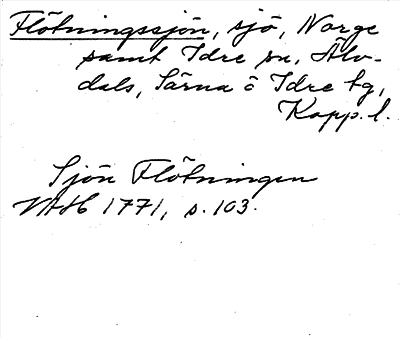 Flötningssjön, sjö, Norge
samt Idre sn, Älv-
dals, Särna o Idre tg,
Kopp. l.
Sjön Flötningen
VAH 1771, s. 103.